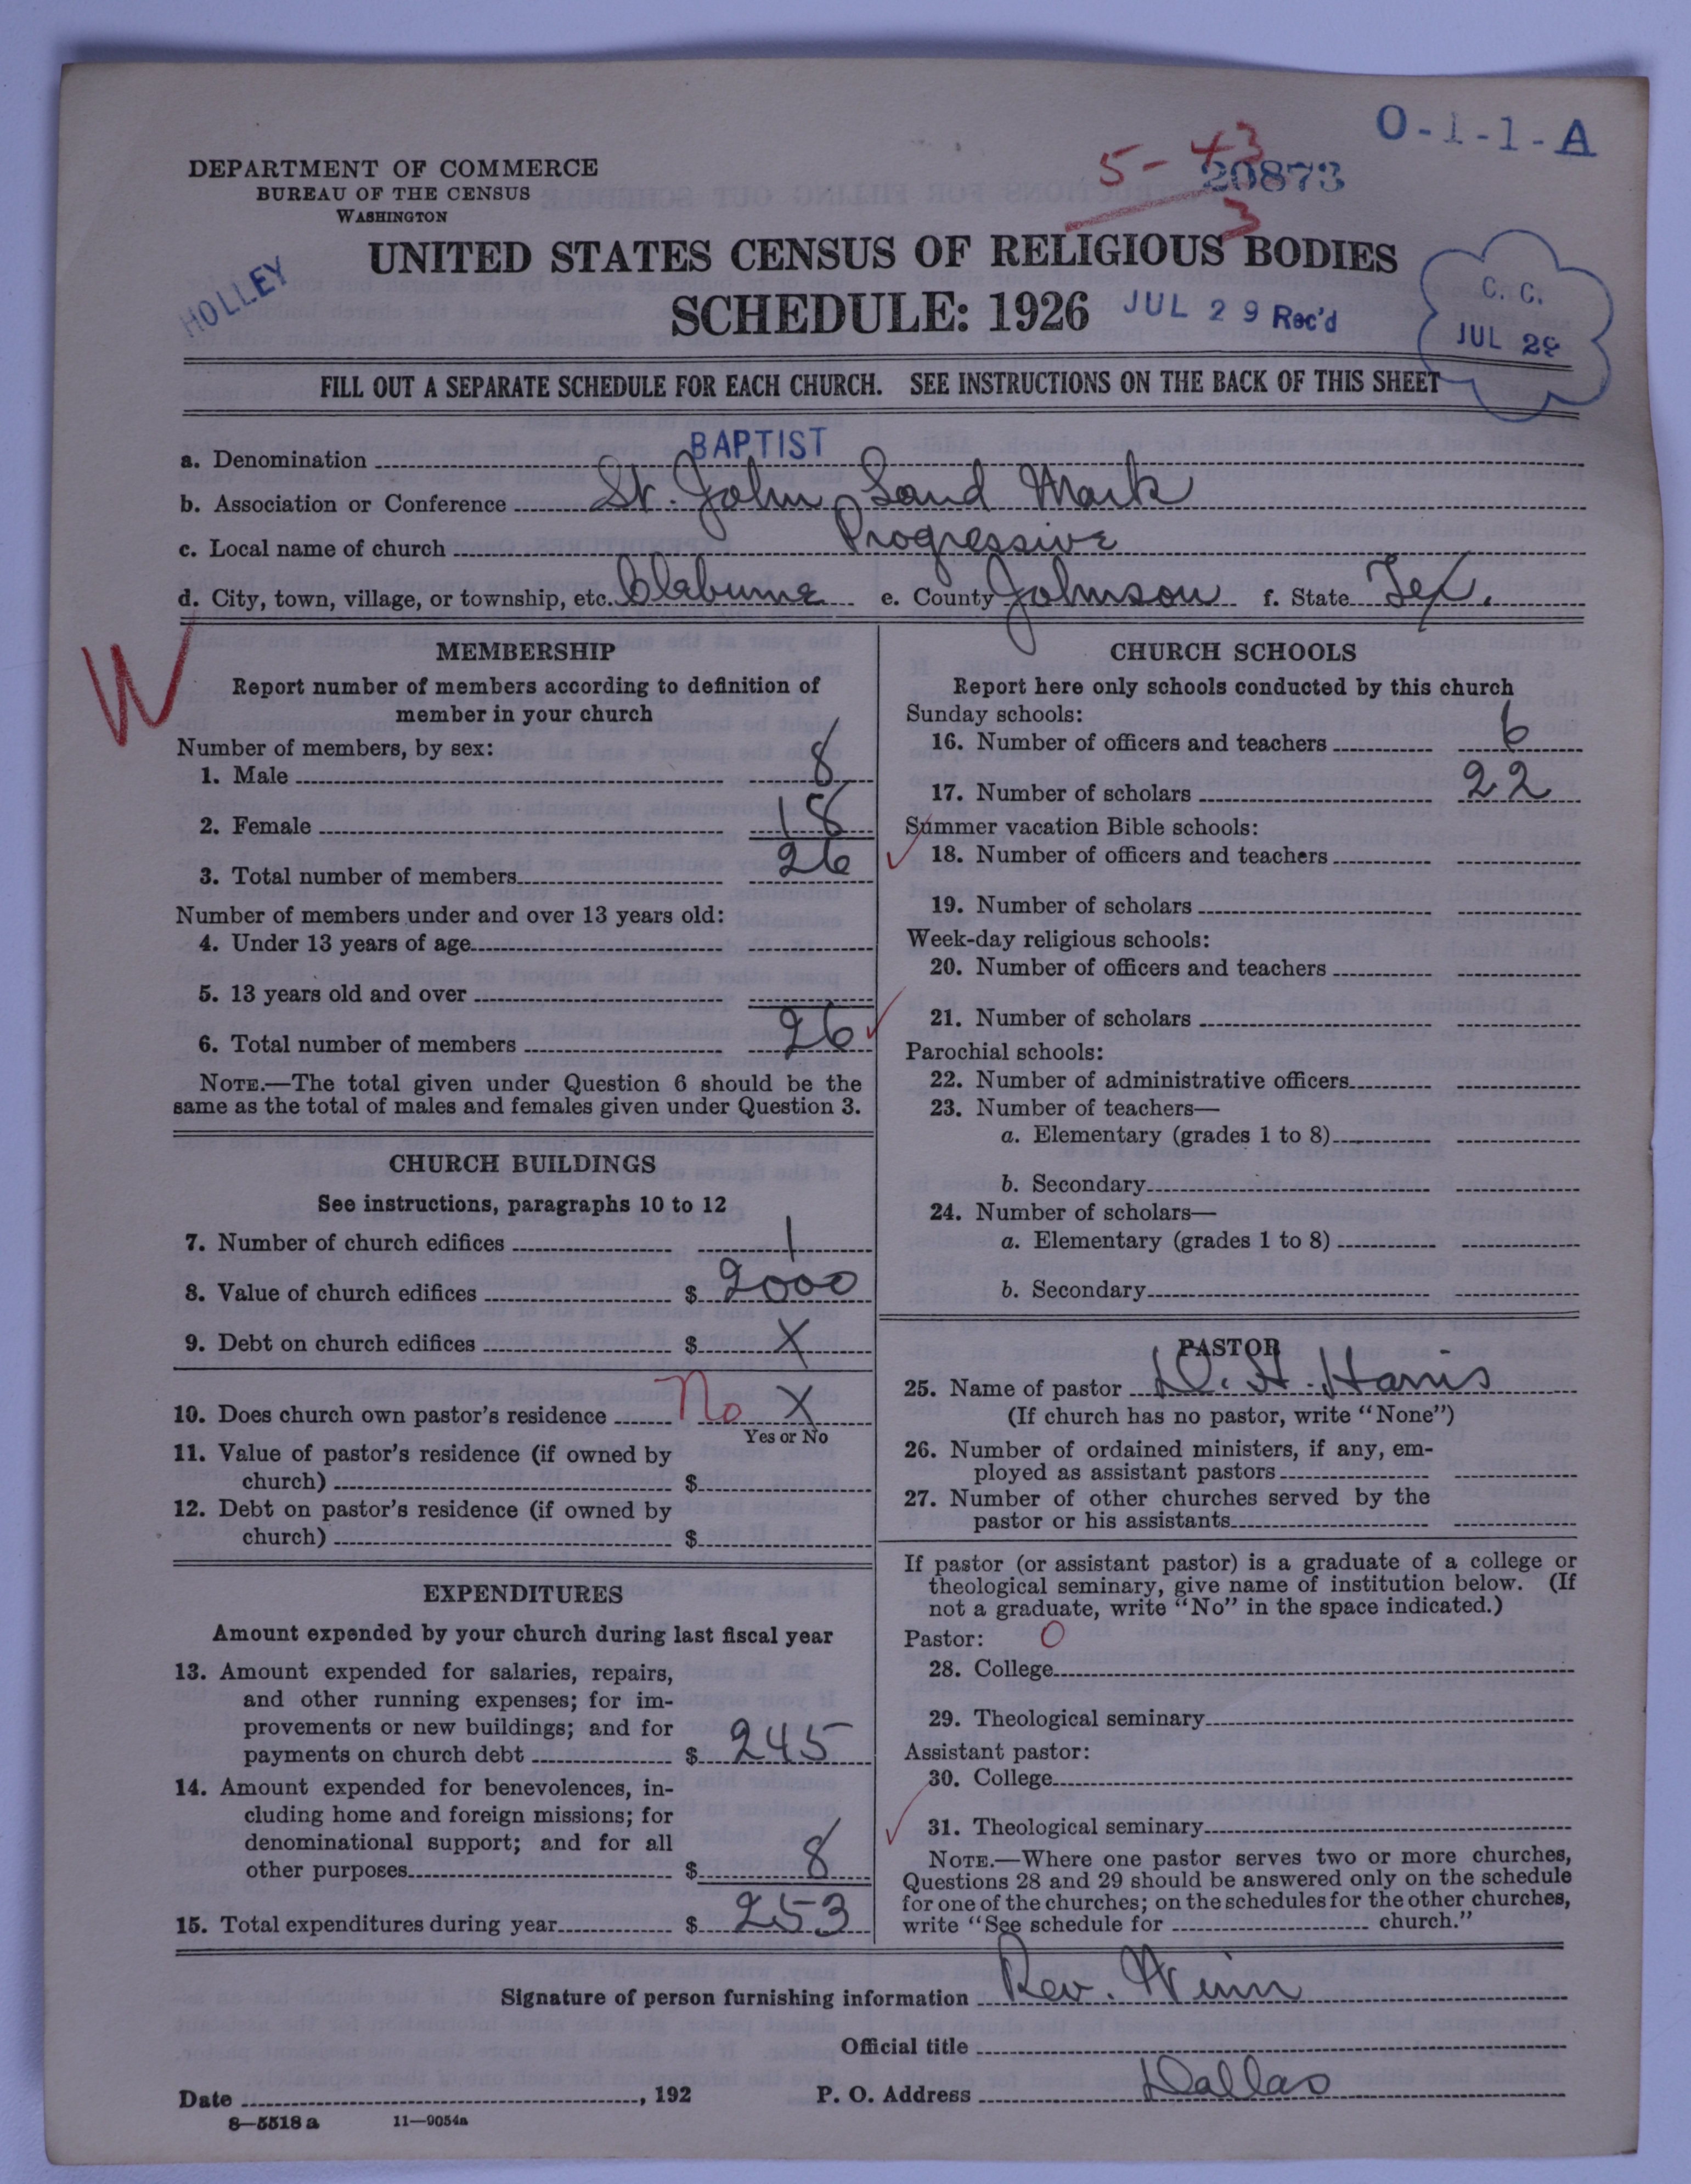 O-1-1-A
5-43
20873
3
DEPARTMENT OF COMMERCE
BUREAU OF THE CENSUS
WASHINGTON
UNITED STATES CENSUS OF RELIGIOUS BODIES
HOLLEY
SCHEDULE: 1926 JUL 29 Rec'd
C. C.
JUL 29
FILL OUT A SEPARATE SCHEDULE FOR EACH CHURCH. SEE INSTRUCTIONS ON THE BACK OF THIS SHEET
a. Denomination BAPTIST
b. Association or Conference St. John Land Mark
c. Local name of church Progressive
d. City, town, village, or township, etc. Claburne e. County Johnson f. State Tex.
W
MEMBERSHIP
Report number of members according to definition of
member in your church
Number of members, by sex:
1. Male 8
2. Female 18
3. Total number of members 26
Number of members under and over 13 years old:
4. Under 13 years of age
5. 13 years old and over
6. Total number of members 26
NOTE.—The total given under Question 6 should be the
same as the total of males and females given under Question 3.
CHURCH BUILDINGS
See instructions, paragraphs 10 to 12
7. Number of church edifices 1
8. Value of church edifices $ 2000
9. Debt on church edifices $ X
10. Does church own pastor's residence No X
Yes or No
11. Value of pastor's residence (if owned by
church) $
12. Debt on pastor's residence (if owned by
church) $
EXPENDITURES
Amount expended by your church during last fiscal year
13. Amount expended for salaries, repairs,
and other running expenses; for im-
provements or new buildings; and for
payments on church debt $ 245
14. Amount expended for benevolences, in-
cluding home and foreign missions; for
denominational support; and for all
other purposes $ 8
15. Total expenditures during year $ 253
CHURCH SCHOOLS
Report here only schools conducted by this church
Sunday schools:
16. Number of officers and teachers 6
17. Number of scholars 22
Summer vacation Bible schools:
18. Number of officers and teachers
19. Number of scholars
Week-day religious schools:
20. Number of officers and teachers
21. Number of scholars
Parochial schools:
22. Number of administrative officers
23. Number of teachers—
a. Elementary (grades 1 to 8)
b. Secondary
24. Number of scholars—
a. Elementary (grades 1 to 8)
b. Secondary
PASTOR
25. Name of pastor D. H. Harris
(If church has no pastor, write "None")
26. Number of ordained ministers, if any, em-
ployed as assistant pastors
27. Number of other churches served by the
pastor or his assistants
If pastor (or assistant pastor) is a graduate of a college or
theological seminary, give name of institution below. (If
not a graduate, write "No" in the space indicated.)
Pastor: O
28. College
29. Theological seminary
Assistant pastor:
30. College
31. Theological seminary
NOTE.—Where one pastor serves two or more churches,
Questions 28 and 29 should be answered only on the schedule
for one of the churches; on the schedules for the other churches,
write "See schedule for church."
Signature of person furnishing information Rev. Winn
Official title
Date , 192 P. O. Address Dallas
8—5518 a 11—9054a